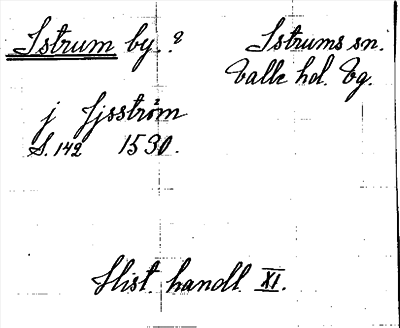 Istrum by. ?
Istrums sn.
Valle hd. Vg.
j Ijsström
S. 142 1530.
Hist. handl. XI.